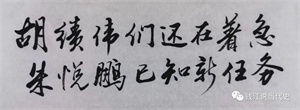 胡绩伟们还在著急
朱悦鹏已知新任务
钱江晚当代史